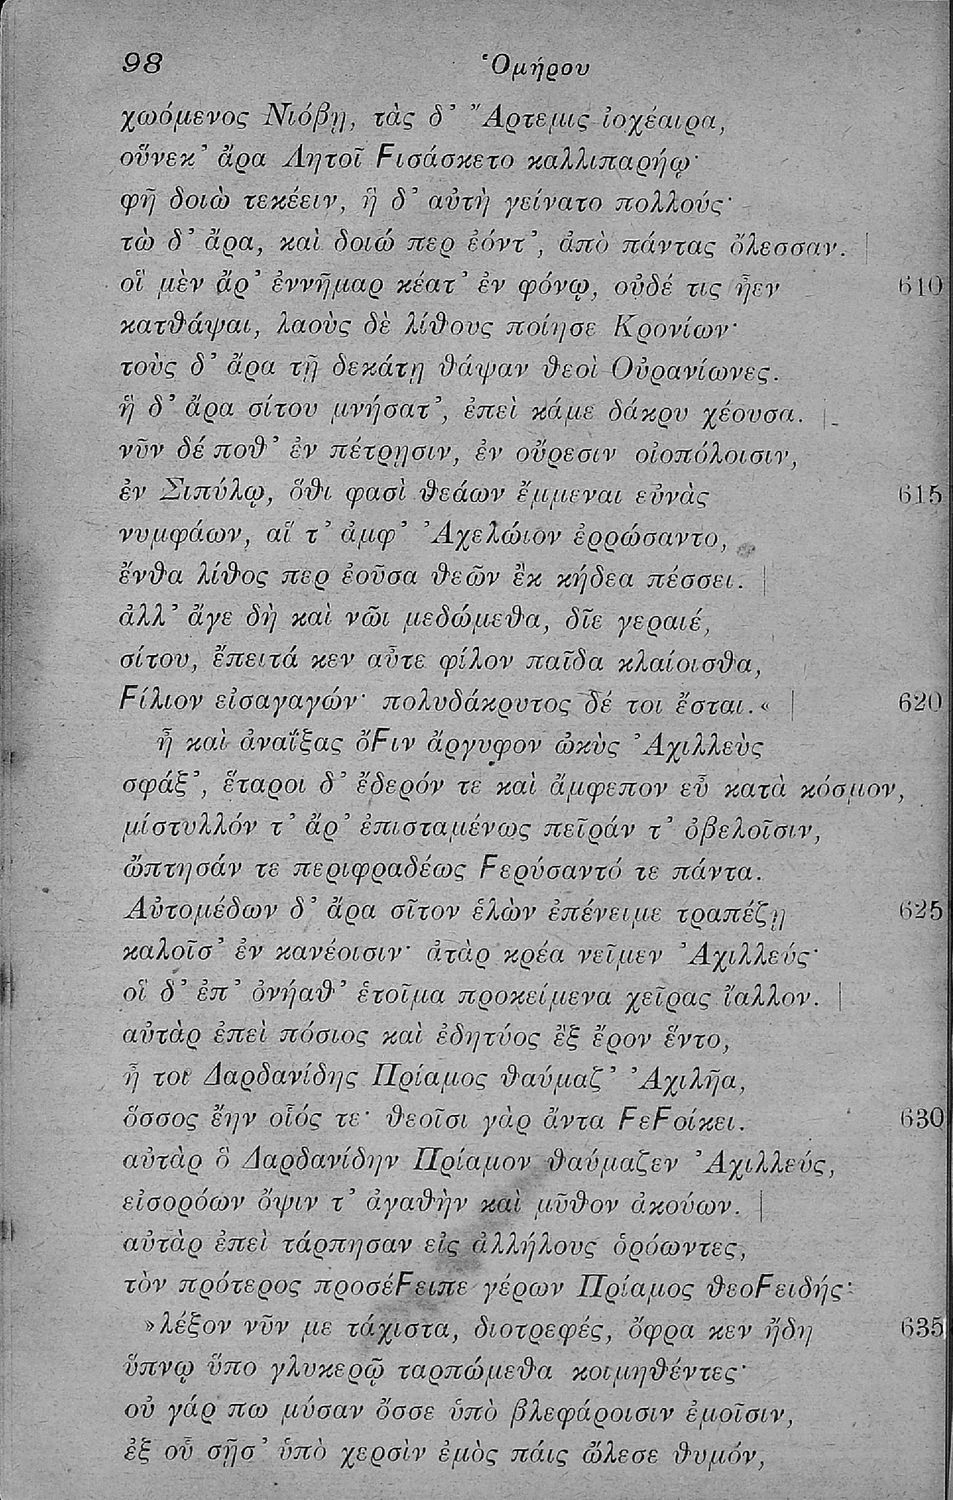 98 Ὁμήρου
χωόμενος Νιόβῃ, τὰς δ’ Ἄρτεμις ἰοχέαιρα,
οὕνεκ’ ἄρα Λητοῖ Ϝισάσκετο καλλιπαρήῳ·
φῆ δοιὼ τεκέειν, ἣ δ’ αὐτὴ γείνατο πολλούς·
τὼ δ’ ἄρα, καὶ δοιώ περ ἐόντ’, ἀπὸ πάντας ὄλεσσαν.
οἳ μὲν ἄρ’ ἐννῆμαρ κέατ’ ἐν φόνῳ, οὐδέ τις ἦεν 610
κατθάψαι, λαοὺς δὲ λίθους ποίησε Κρονίων·
τοὺς δ’ ἄρα τῇ δεκάτῃ θάψαν θεοὶ Οὐρανίωνες.
ἣ δ’ ἄρα σίτου μνήσατ’, ἐπεὶ κάμε δάκρυ χέουσα.
νῦν δέ ποθ’ ἐν πέτρῃσιν, ἐν οὔρεσιν οἰοπόλοισιν,
ἐν Σιπύλῳ, ὅθι φασὶ θεάων ἔμμεναι εὐνὰς 615
νυμφάων, αἵ τ’ ἀμφ’ Ἀχελώιον ἐρρώσαντο,
ἔνθα λίθος περ ἐοῦσα θεῶν ἒκ κήδεα πέσσει.
ἀλλ’ ἄγε δὴ καὶ νῶι μεδώμεθα, δῖε γεραιέ,
σίτου, ἔπειτά κεν αὖτε φίλον παῖδα κλαίοισθα,
Ϝίλιον εἰσαγαγών· πολυδάκρυτος δέ τοι ἔσται.«  620
ἦ καὶ ἀναΐξας ὄϜιν ἄργυφον ὠκὺς Ἀχιλλεὺς
σφάξ’, ἕταροι δ’ ἔδερόν τε καὶ ἄμφεπον εὖ κατὰ κόσμον,
μίστυλλόν τ’ ἄρ’ ἐπισταμένως πεῖράν τ’ ὀβελοῖσιν,
ὤπτησάν τε περιφραδέως Ϝερύσαντό τε πάντα.
Αὐτομέδων δ’ ἄρα σῖτον ἑλὼν ἐπένειμε τραπέζῃ 625
καλοῖσ’ ἐν κανέοισιν· ἀτὰρ κρέα νεῖμεν Ἀχιλλεύς·
οἳ δ’ ἐπ’ ὀνήαθ’ ἑτοῖμα προκείμενα χεῖρας ἴαλλον.
αὐτὰρ ἐπεὶ πόσιος καὶ ἐδητύος ἒξ ἔρον ἕντο,
ἦ τοι Δαρδανίδης Πρίαμος θαύμαζ’ Ἀχιλῆα,
ὅσσος ἔην οἷός τε· θεοῖσι γὰρ ἄντα ϜεϜοίκει. 630
αὐτὰρ ὃ Δαρδανίδην Πρίαμον θαύμαζεν Ἀχιλλεύς,
εἰσορόων ὄψιν τ’ ἀγαθὴν καὶ μῦθον ἀκούων.
αὐτὰρ ἐπεὶ τάρπησαν εἰς ἀλλήλους ὁρόωντες,
τὸν πρότερος προσέϜειπε γέρων Πρίαμος θεοϜειδής·
»λέξον νῦν με τάχιστα, διοτρεφές, ὄφρα κεν ἤδη 635
ὕπνῳ ὕπο γλυκερῷ ταρπώμεθα κοιμηθέντες·
οὐ γάρ πω μύσαν ὄσσε ὑπὸ βλεφάροισιν ἐμοῖσιν,
ἐξ οὗ σῇσ’ ὑπὸ χερσὶν ἐμὸς πάις ὤλεσε θυμόν,